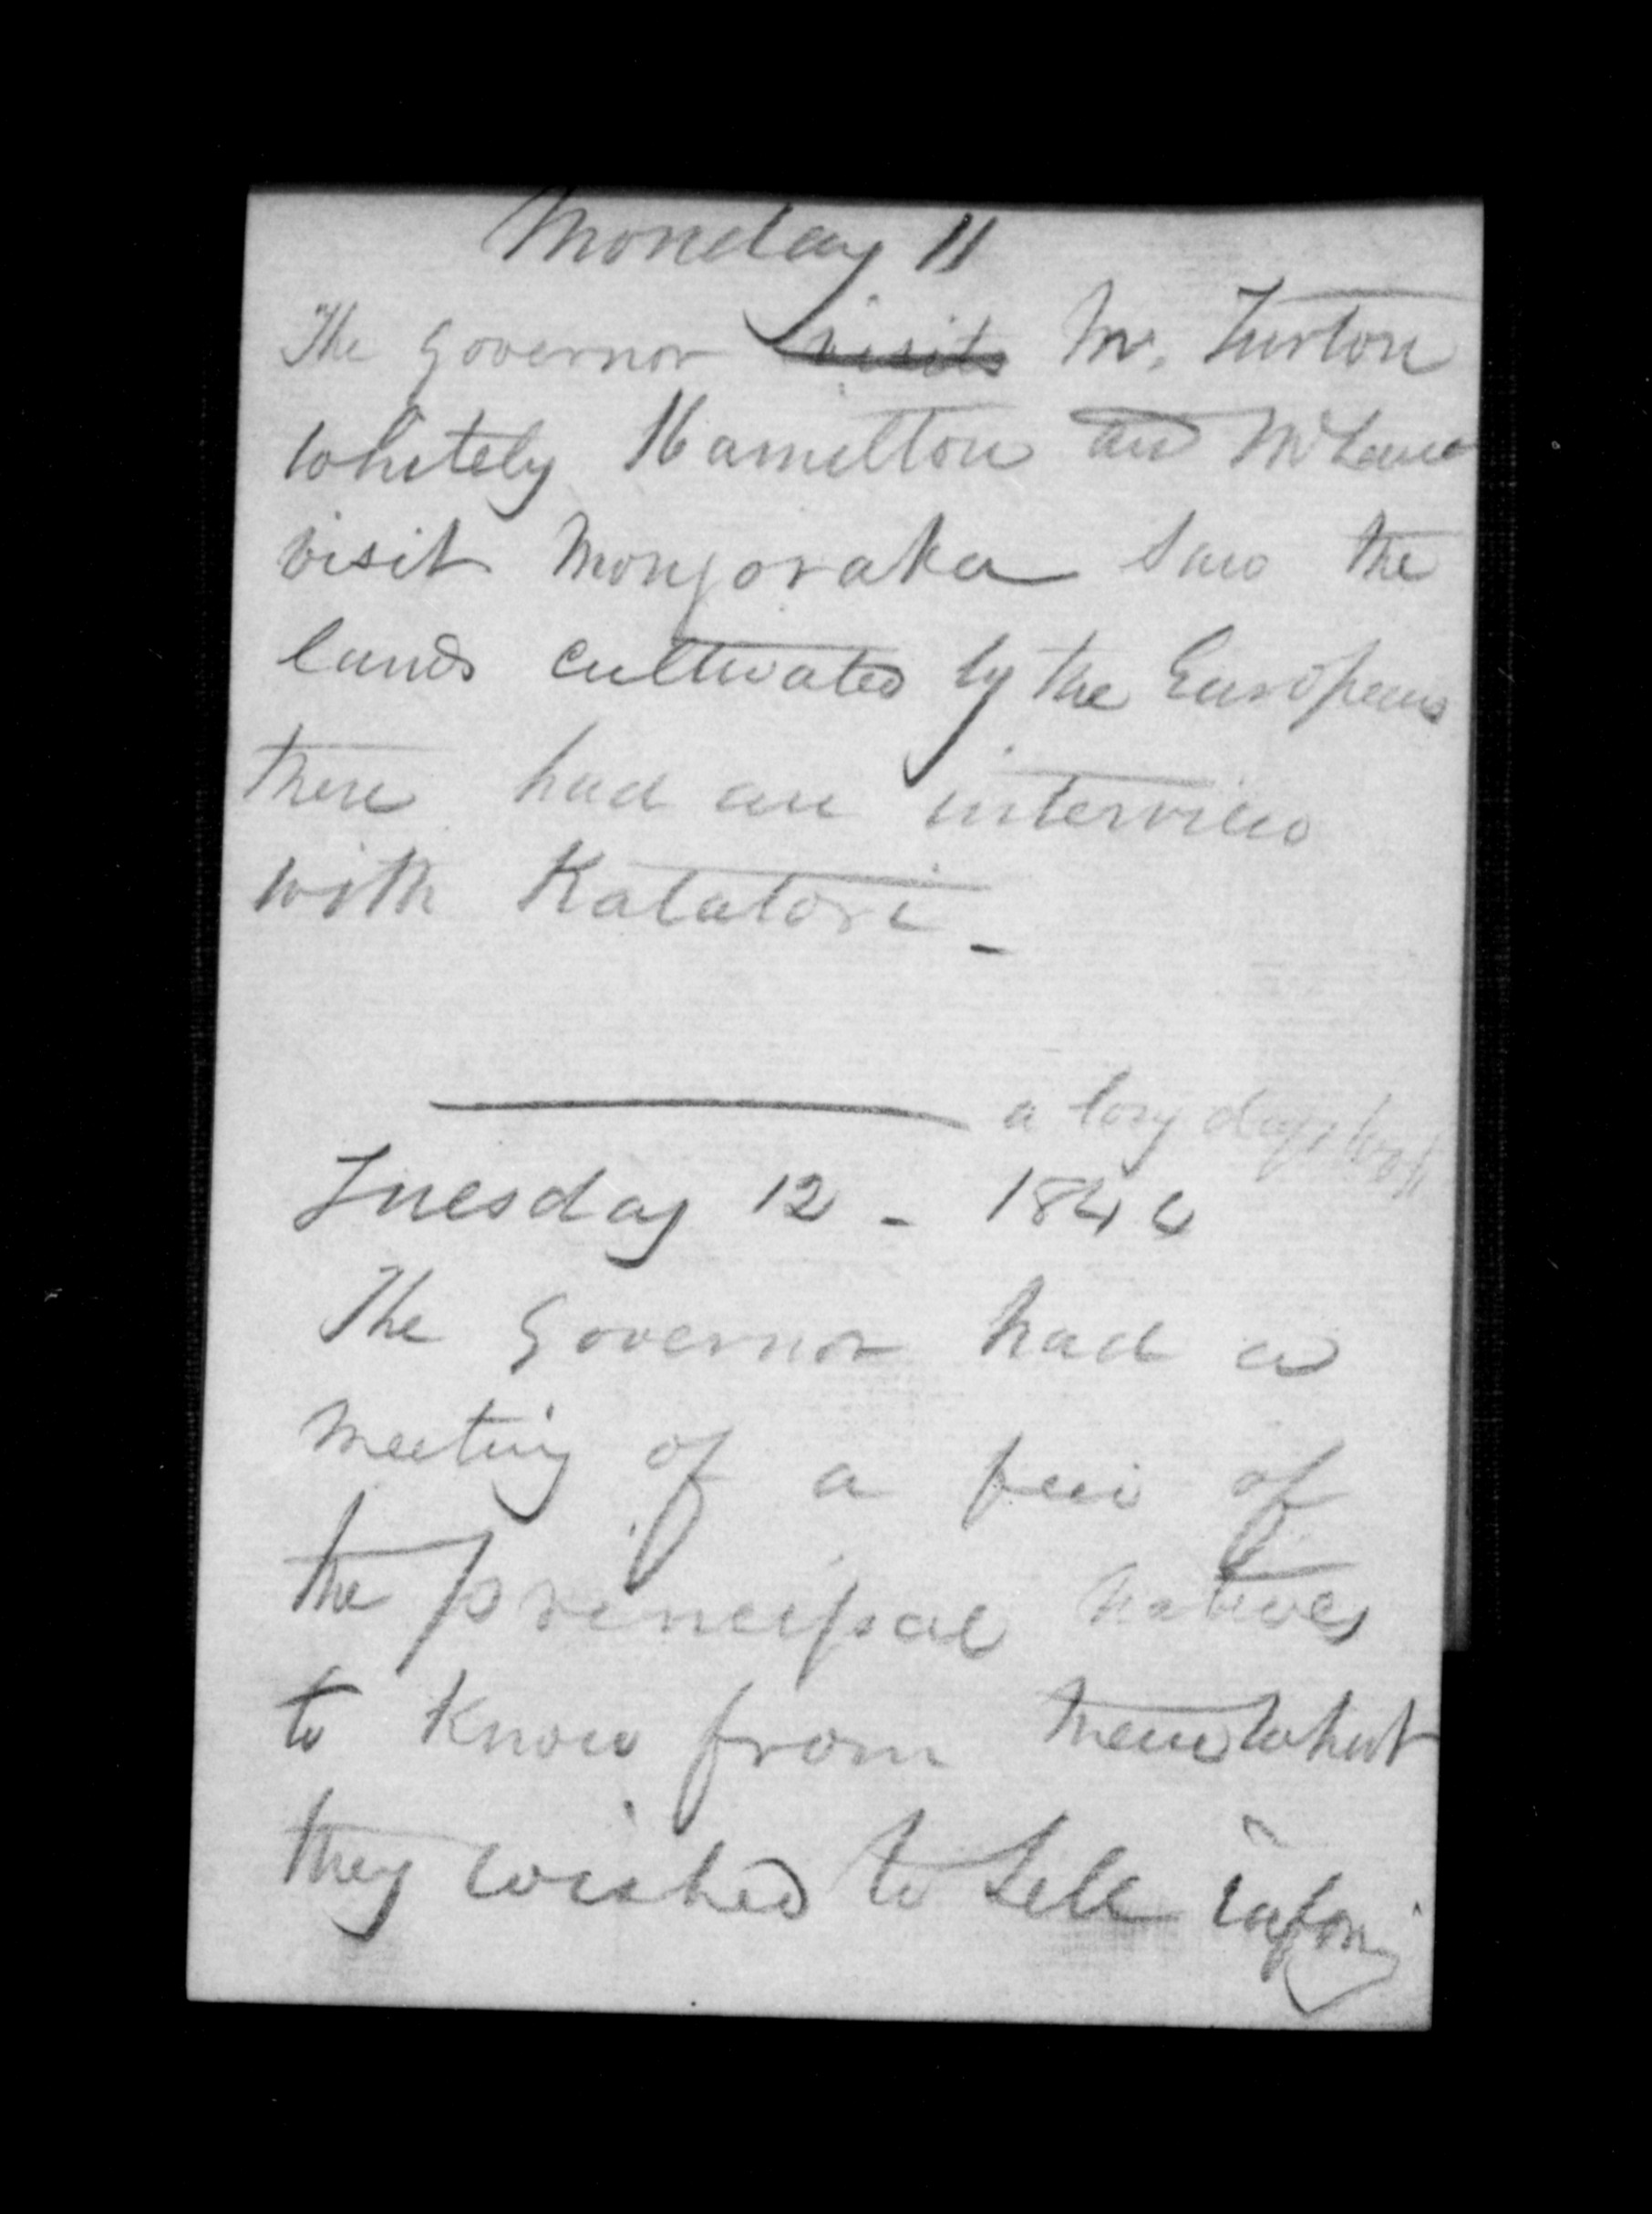 Monday 11
The Governor visits Mr. Turton
Whitely Hamilton and McLean
visit Mongoraka saw the
lands cultivated by the Europeans
there had an interview
with Katatore _
a long days
Tuesday 12 - 1844
The Governor had a
meeting of a few of
the principal natives
to know from them what
they wished to sell